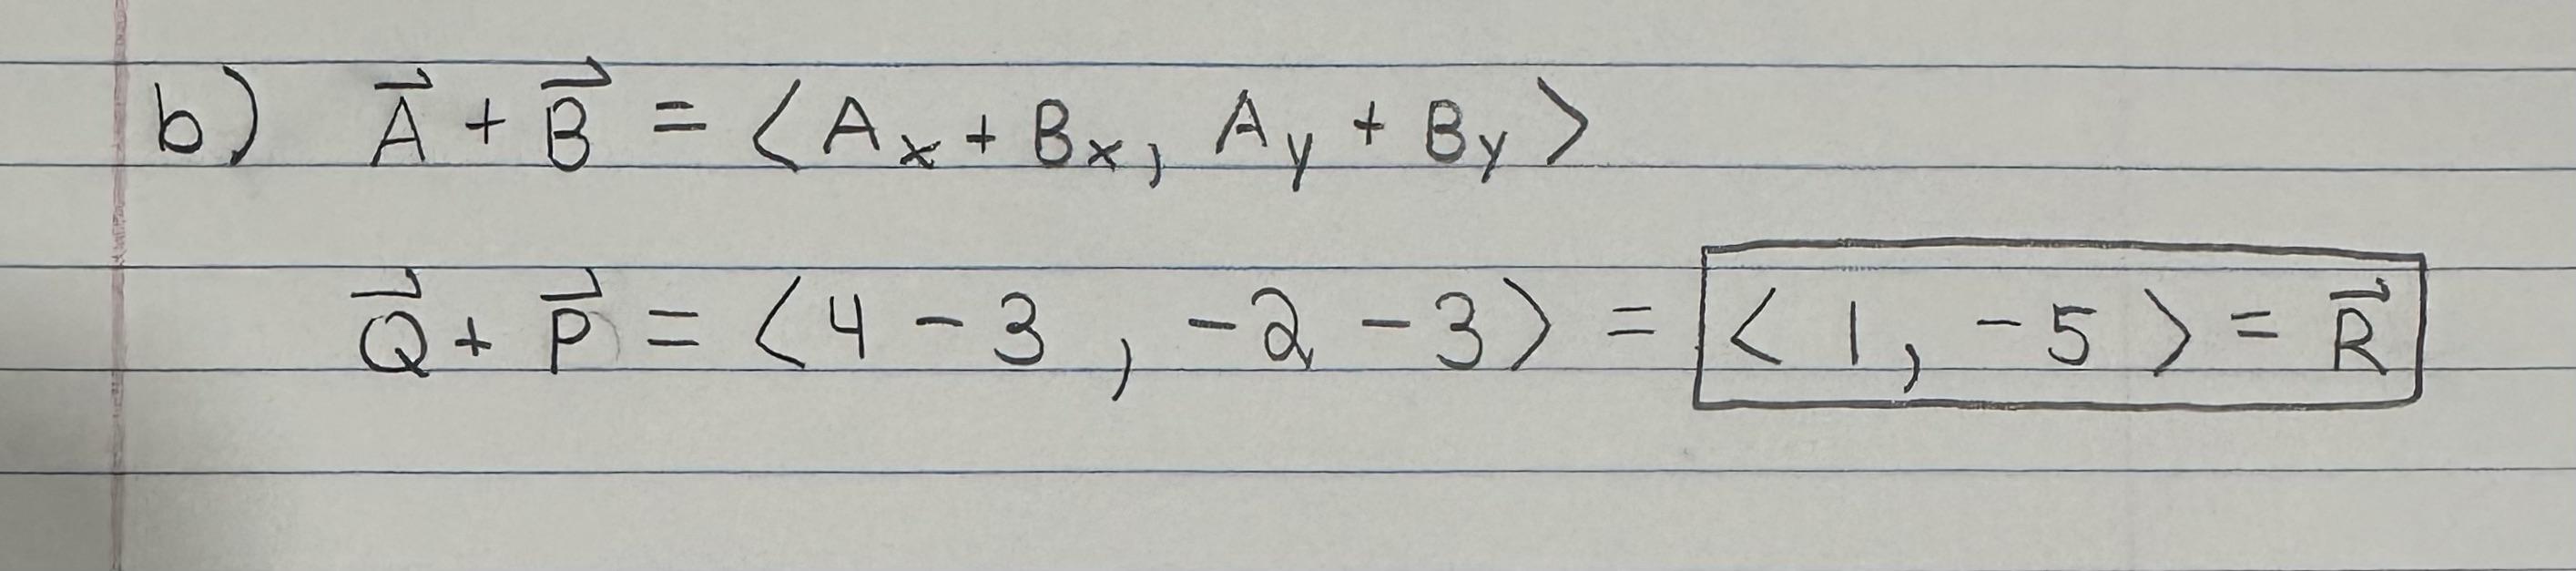 b) A⃗ + B⃗ = ⟨Aₓ + Bₓ, A_y + B_y⟩
Q⃗ + P⃗ = ⟨4 - 3, -2 - 3⟩ = ⟨1, -5⟩ = R⃗